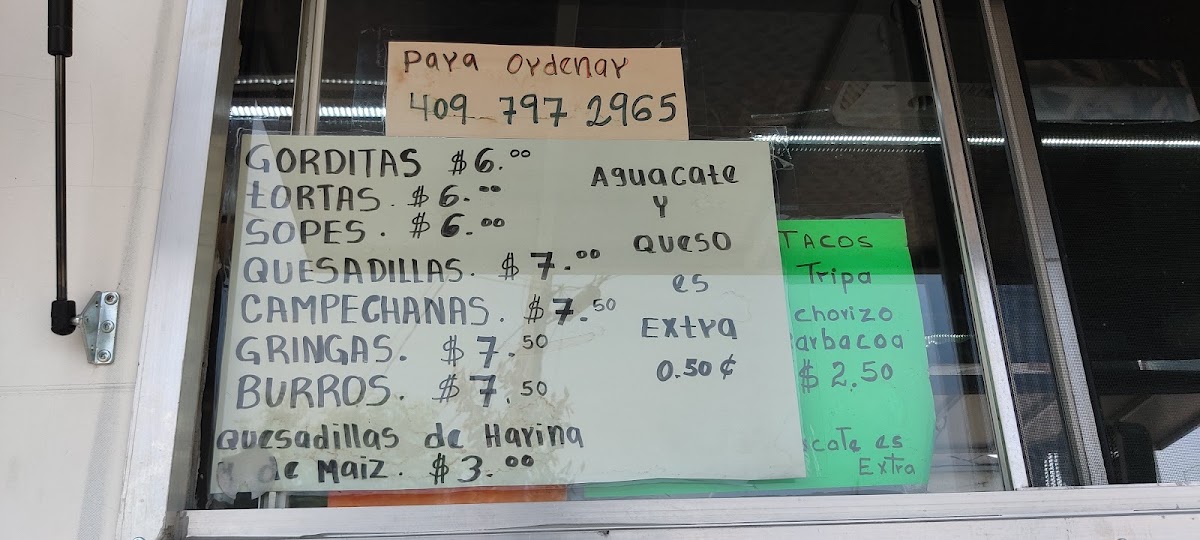 Para Ordenar
409 797 2965
GORDITAS $6.00
tORTAS. $6.00
SOPES. $6.00
QUESADILLAS. $7.00
CAMPECHANAS. $7.50
GRINGAS. $7.50
BURROS. $7.50
Quesadillas de Harina
y de Maiz. $3.00
Aguacate
Y
Queso
es
Extra
0.50 ¢
TACOS
Tripa
chorizo
arbacoa
$ 2.50
cate es
Extra